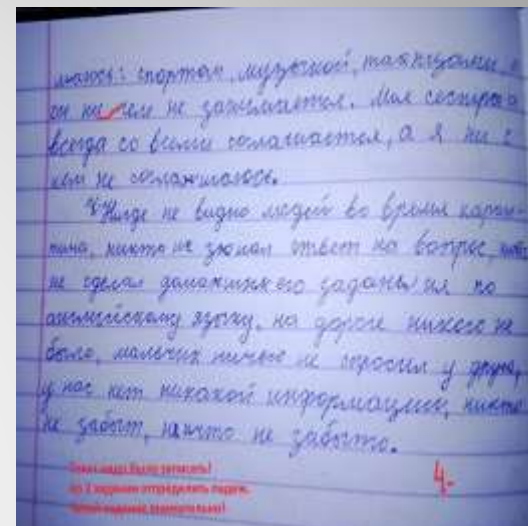 спортом, музыкой, танцами, а
он ни чем не занимается. Моя сестра
всегда со всеми соглашается, а я ни с
кем не соглашаюсь.
Нигде не видно людей во время каран
тина, никто не знал ответ на вопрос, никто
не сделал домашнего задания по
английскому языку, на дороге никого не
было, мальчик ничего не спросил у друга,
у нас нет никакой информации, никто
не забыт, ничто не забыто.
надо было записать!
во 2 задании определить падеж.
задание внимательно!
4-